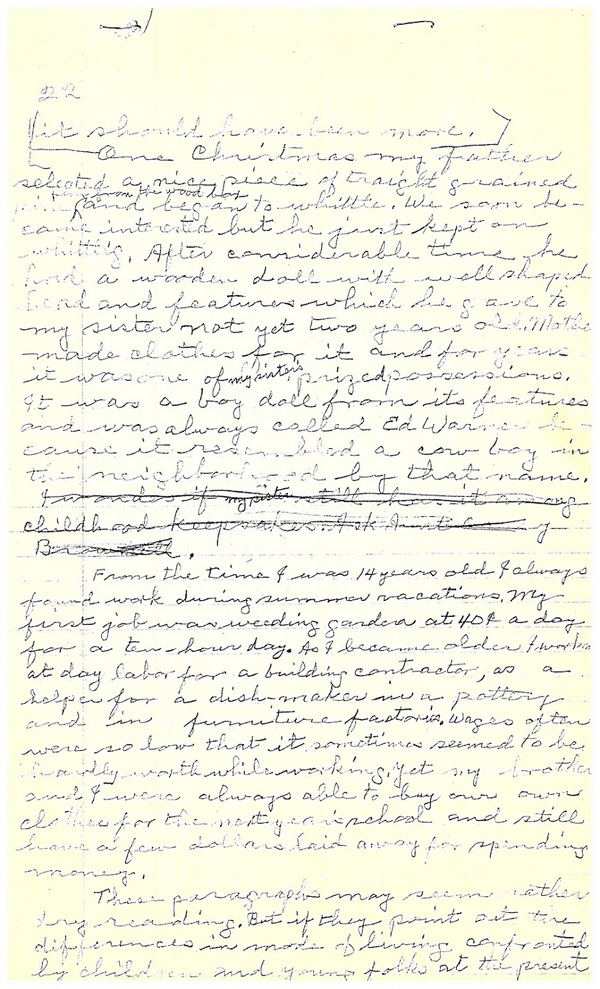 22
[it should have been more.]
One Christmas my father
selected a nice piece of straight grained
pine from the wood box and began to whittle. We soon be-
came interested but he just kept on
whittling. After considerable time he
had a wooden doll with well shaped
head and features which he gave to
my sister not yet two years old. Mother
made clothes for it and for years
it was one of my sister's prized possessions.
It was a boy doll from its features
and was always called Ed Warner be-
cause it resembled a cow boy in
the neighborhood by that name.
I wonder if my sister still has it among
childhood keepsakes. Ask Aunt
From the time I was 14 years old I always
found work during summer vacations. My
first job was weeding garden at 40¢ a day
for a ten-hour day. As I became older I worked
at day labor for a building contractor, as a
helper for a dish-maker in a pottery
and in furniture factories. Wages often
were so low that it sometimes seemed to be
hardly worth while working. Yet my brother
and I were always able to buy our own
clothes for the next year in school and still
have a few dollars laid away for spending
money.
These paragraphs may seem rather
dry reading. But if they point out the
differences in mode of living confronted
by children and young folks at the present